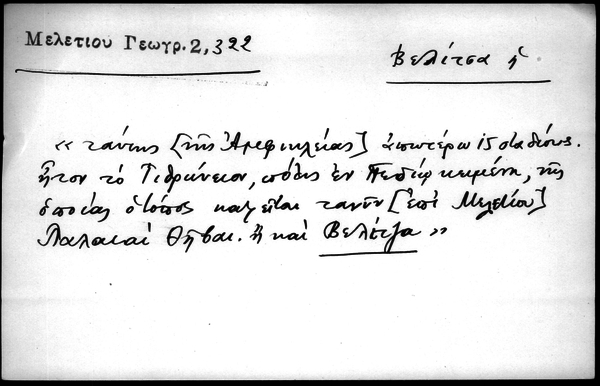 Μελετίου Γεωγρ. 2, 322
Βελίτσα ἡ
« ταύτης [τῆς Ἀμφικλείας] ἀπωτέρω 15 σταδίους.
ἦτον τὸ Τιθρώνειον, πόλις ἐν Πεδίῳ κειμένη, τῆς
ὁποίας ὁ τόπος καλεῖται τανῦν [ἐπὶ Μελετίου]
Παλαιαὶ Θῆβαι. ἢ καὶ Βελίτζα »